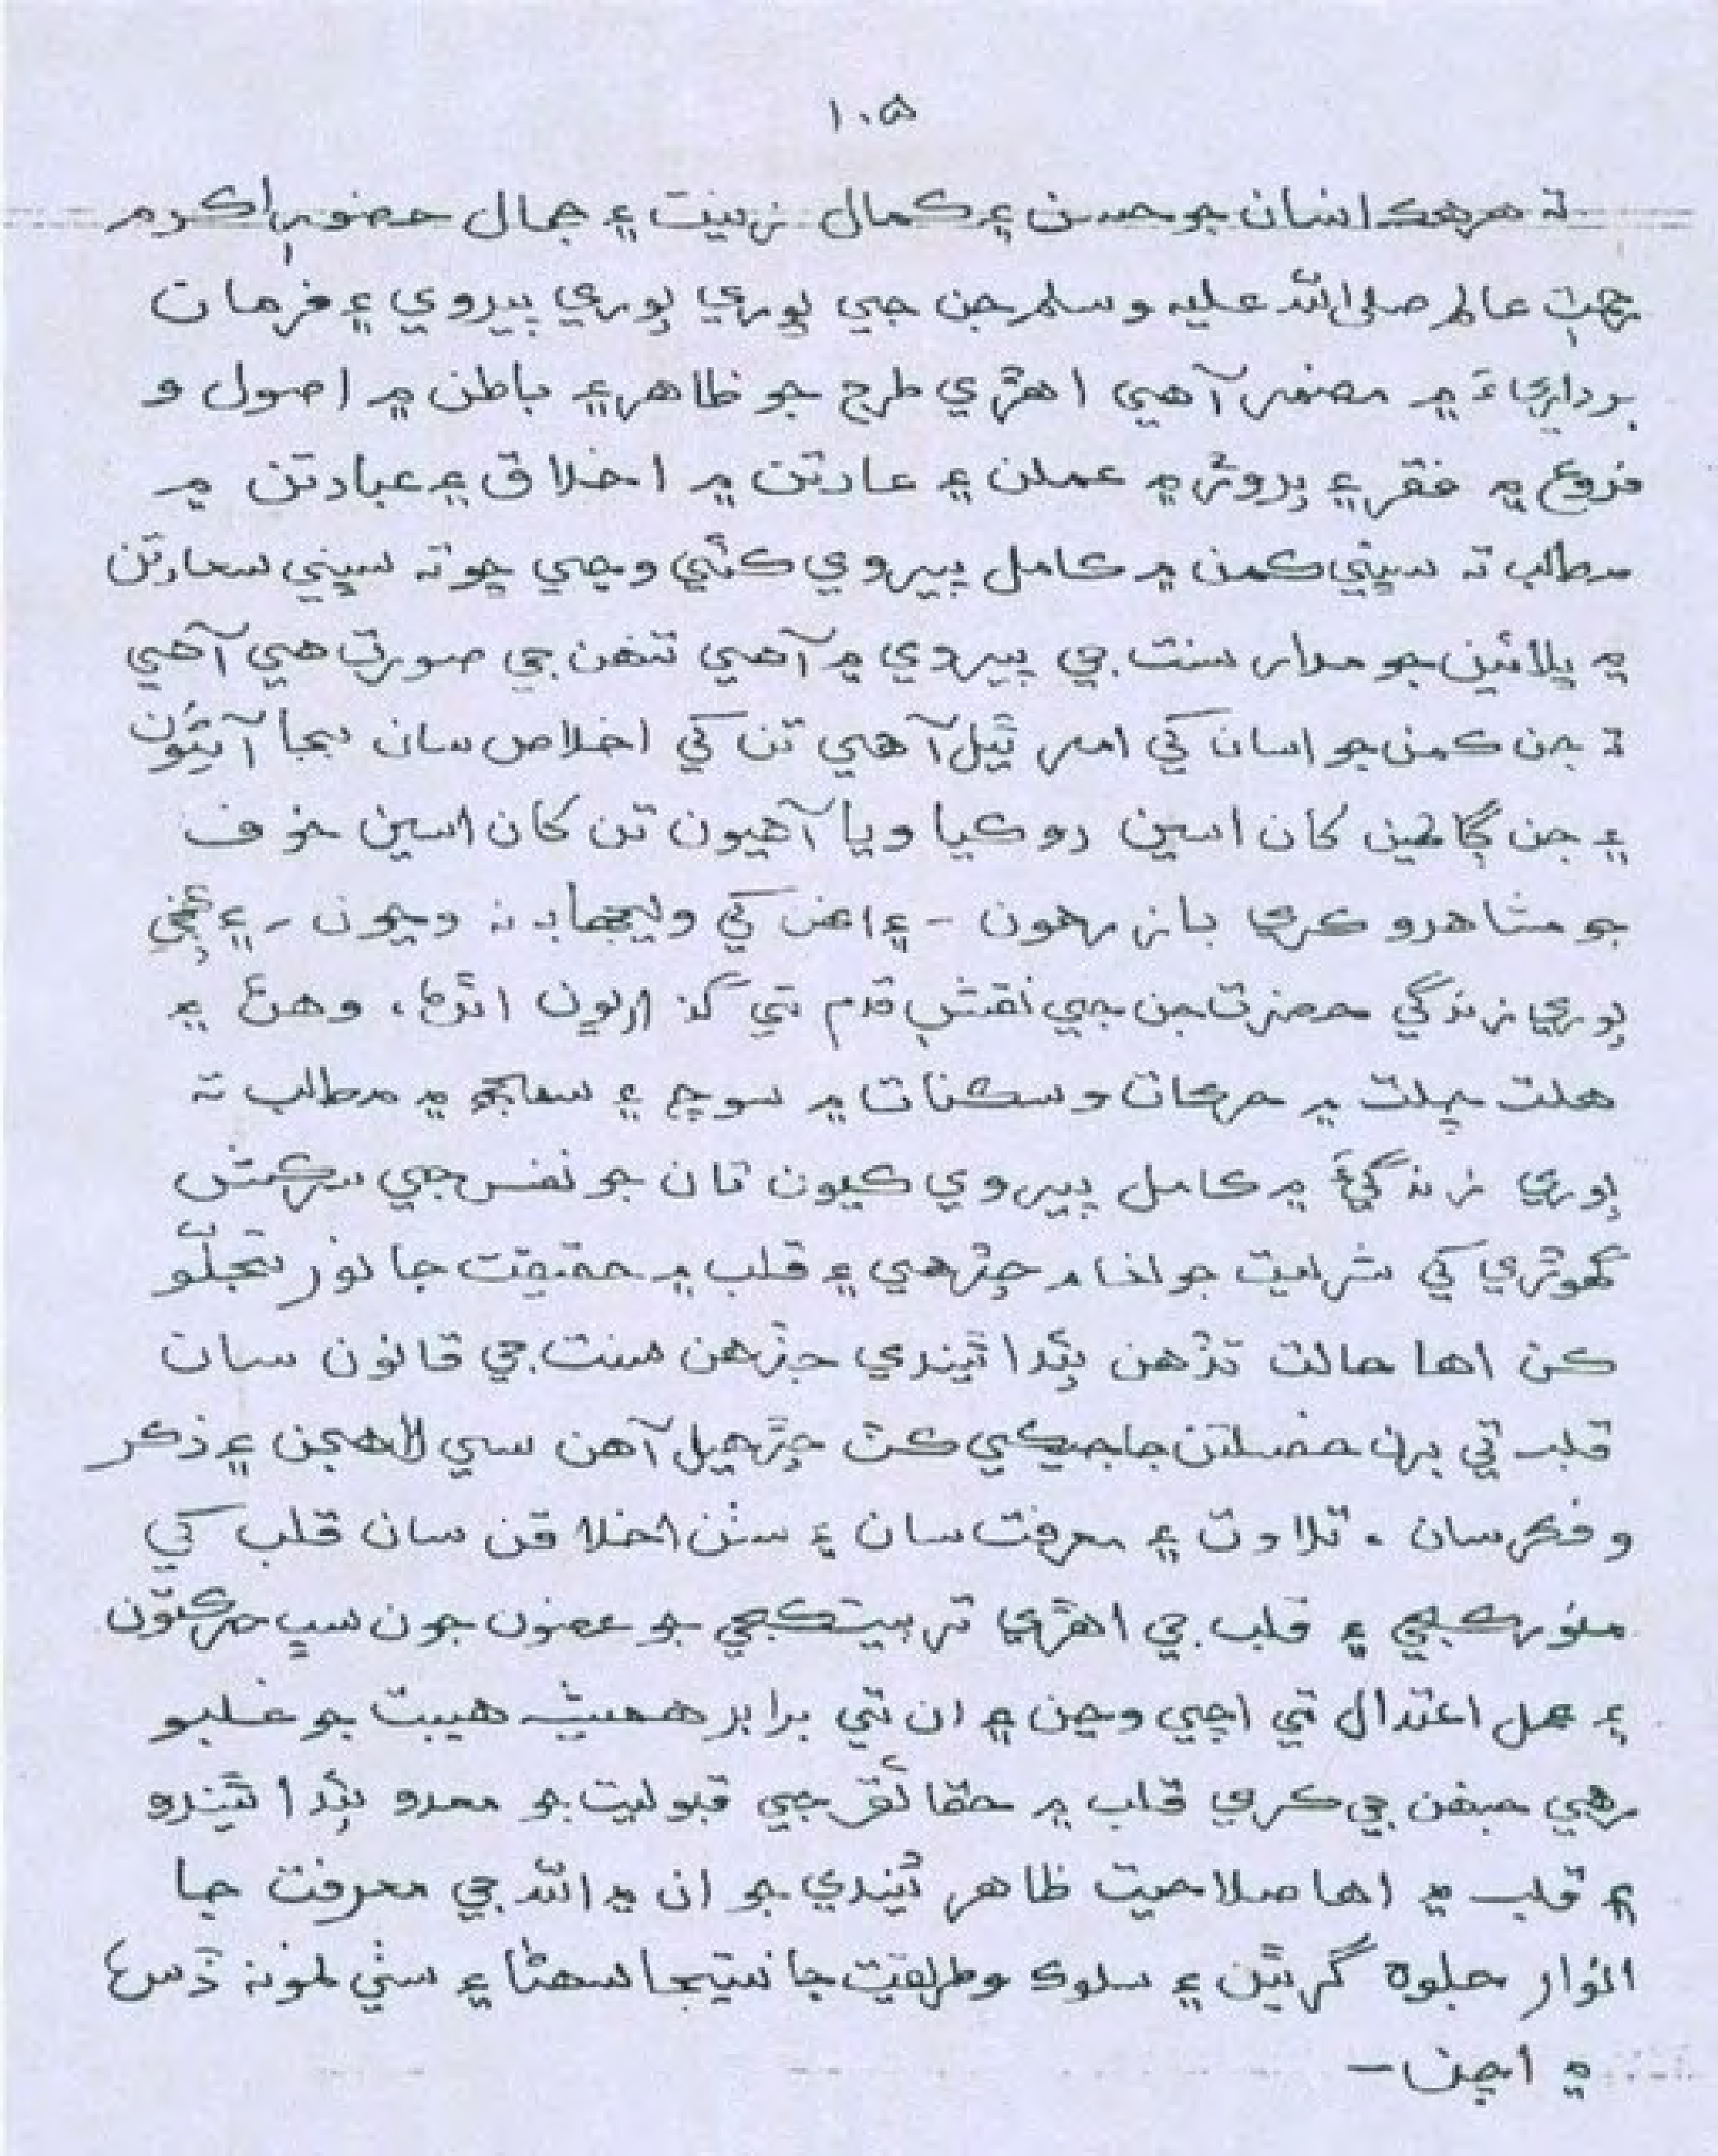 ۱۰۵
تہ هر هڪ انسان جو حسن ۽ ڪمال زينت ۽ جمال حضور اڪرم
رحمتِ عالم صلي الله عليه وسلم جن جي پوري پوري پيروي ۽ فرمان
برداريءَ ۾ مضمر آهي اهڙي طرح جو ظاهر ۽ باطن ۾ اصول و
فروع ۾ فقر ۽ پروڙ ۾ عملن ۽ عادتن ۾ اخلاق ۽ عبادتن ۾
مطلب تہ سڀني ڪمن ۾ ڪامل پيروي ڪئي وڃي ڇو تہ سڀني سعادتن
۾ ڀلائين جو مدار سنت جي پيروي ۾ آهي تنهن جي صورت هي آهي
تہ جن ڪمن جو اسان کي امر ٿيل آهي تن کي اخلاص سان بجا آڻيُون
۽ جن ڳالهين کان اسين روڪيا ويا آهيون تن کان اسين خوف
جو مشاهدو ڪري باز رهون - ۽ انهن کي ويجها بہ نہ وڃون - ۽
پوري زندگي حضرت جن جي نقشِ قدم تي گذاريون اٿڻ، وهڻ ۾
هلت چلت ۾ حرڪات وسڪنات ۾ سوچ ۽ سمجهہ ۾ مطلب تہ
پوري زندگيءَ ۾ ڪامل پيروي ڪيون تان جو نفس جي سرڪش
گهوڙي کي شريعت جو لغام چڙهي ۽ قلب ۾ حقيقت جا نور تجلّو
ڪن اها حالت تڏهن پئدا ٿيندي جڏهن سنت جي قانون سان
قلب تي برن خصلتن جا جيڪي ڪٽ چڙهيل آهن سي لاهجن ۽ ذڪر
و فڪر سان ۔ تلاوت ۽ معرفت سان ۽ سٺن اخلاقن سان قلب کي
منور ڪجي ۽ قلب جي اهڙي تربيت ڪجي جو عضون جون سڀ حرڪتون
۽ عمل اعتدال تي اچي وڃن ۾ ان تي برابر هميشہ هيبت جو غلبو
رهي جنهن جي ڪري قلب ۾ حقائق جي قبوليت جو معدو پئدا ٿيندو
۽ قلب ۾ اها صلاحيت ظاهر ٿيندي جو ان ۾ الله جي معرفت جا
انوار جلوه گر ٿين ۽ سلوڪ وطريقت جا نتيجا سهڻا ۽ سٺي نمونہ ڏسڻ
۾ اچن -